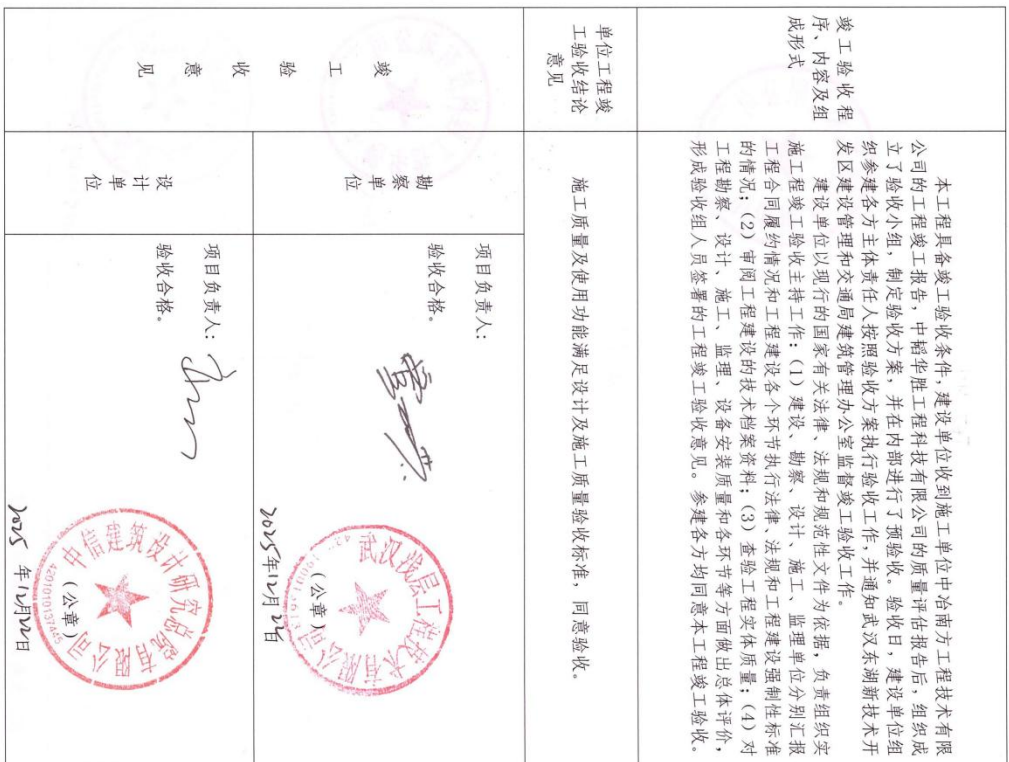 竣工验收程
序、内容及组
成形式
本工程具备竣工验收条件,建设单位收到施工单位中冶南方工程技术有限
公司的工程竣工报告,中韬华胜工程科技有限公司的质量评估报告后,组织成
立了验收小组,制定验收方案,并在内部进行了预验收。验收日,建设单位组
织参建各方主体责任人按照验收方案执行验收工作,并通知武汉东湖新技术开
发区建设管理和交通局建筑管理办公室监督竣工验收工作。
建设单位以现行的国家有关法律、法规和规范性文件为依据,负责组织实
施工程竣工验收主持工作:(1)建设、勘察、设计、施工、监理单位分别汇报
工程合同履约情况和工程建设各个环节执行法律、法规和工程建设强制性标准
的情况;(2)审阅工程建设的技术档案资料;(3)查验工程实体质量;(4)对
工程勘察、设计、施工、监理、设备安装质量和各环节等方面做出总体评价,
形成验收组人员签署的工程竣工验收意见。参建各方均同意本工程竣工验收。
单位工程竣
工验收结论
意见
施工质量及使用功能满足设计及施工质量验收标准,同意验收。
竣工验收意见
勘察单位
项目负责人:
验收合格。
武汉浅层工程技术有限公司
(公章)
2025年12月22日
设计单位
项目负责人:
验收合格。
中信建筑设计研究总院有限公司
(公章)
4201010137445
2025年12月22日